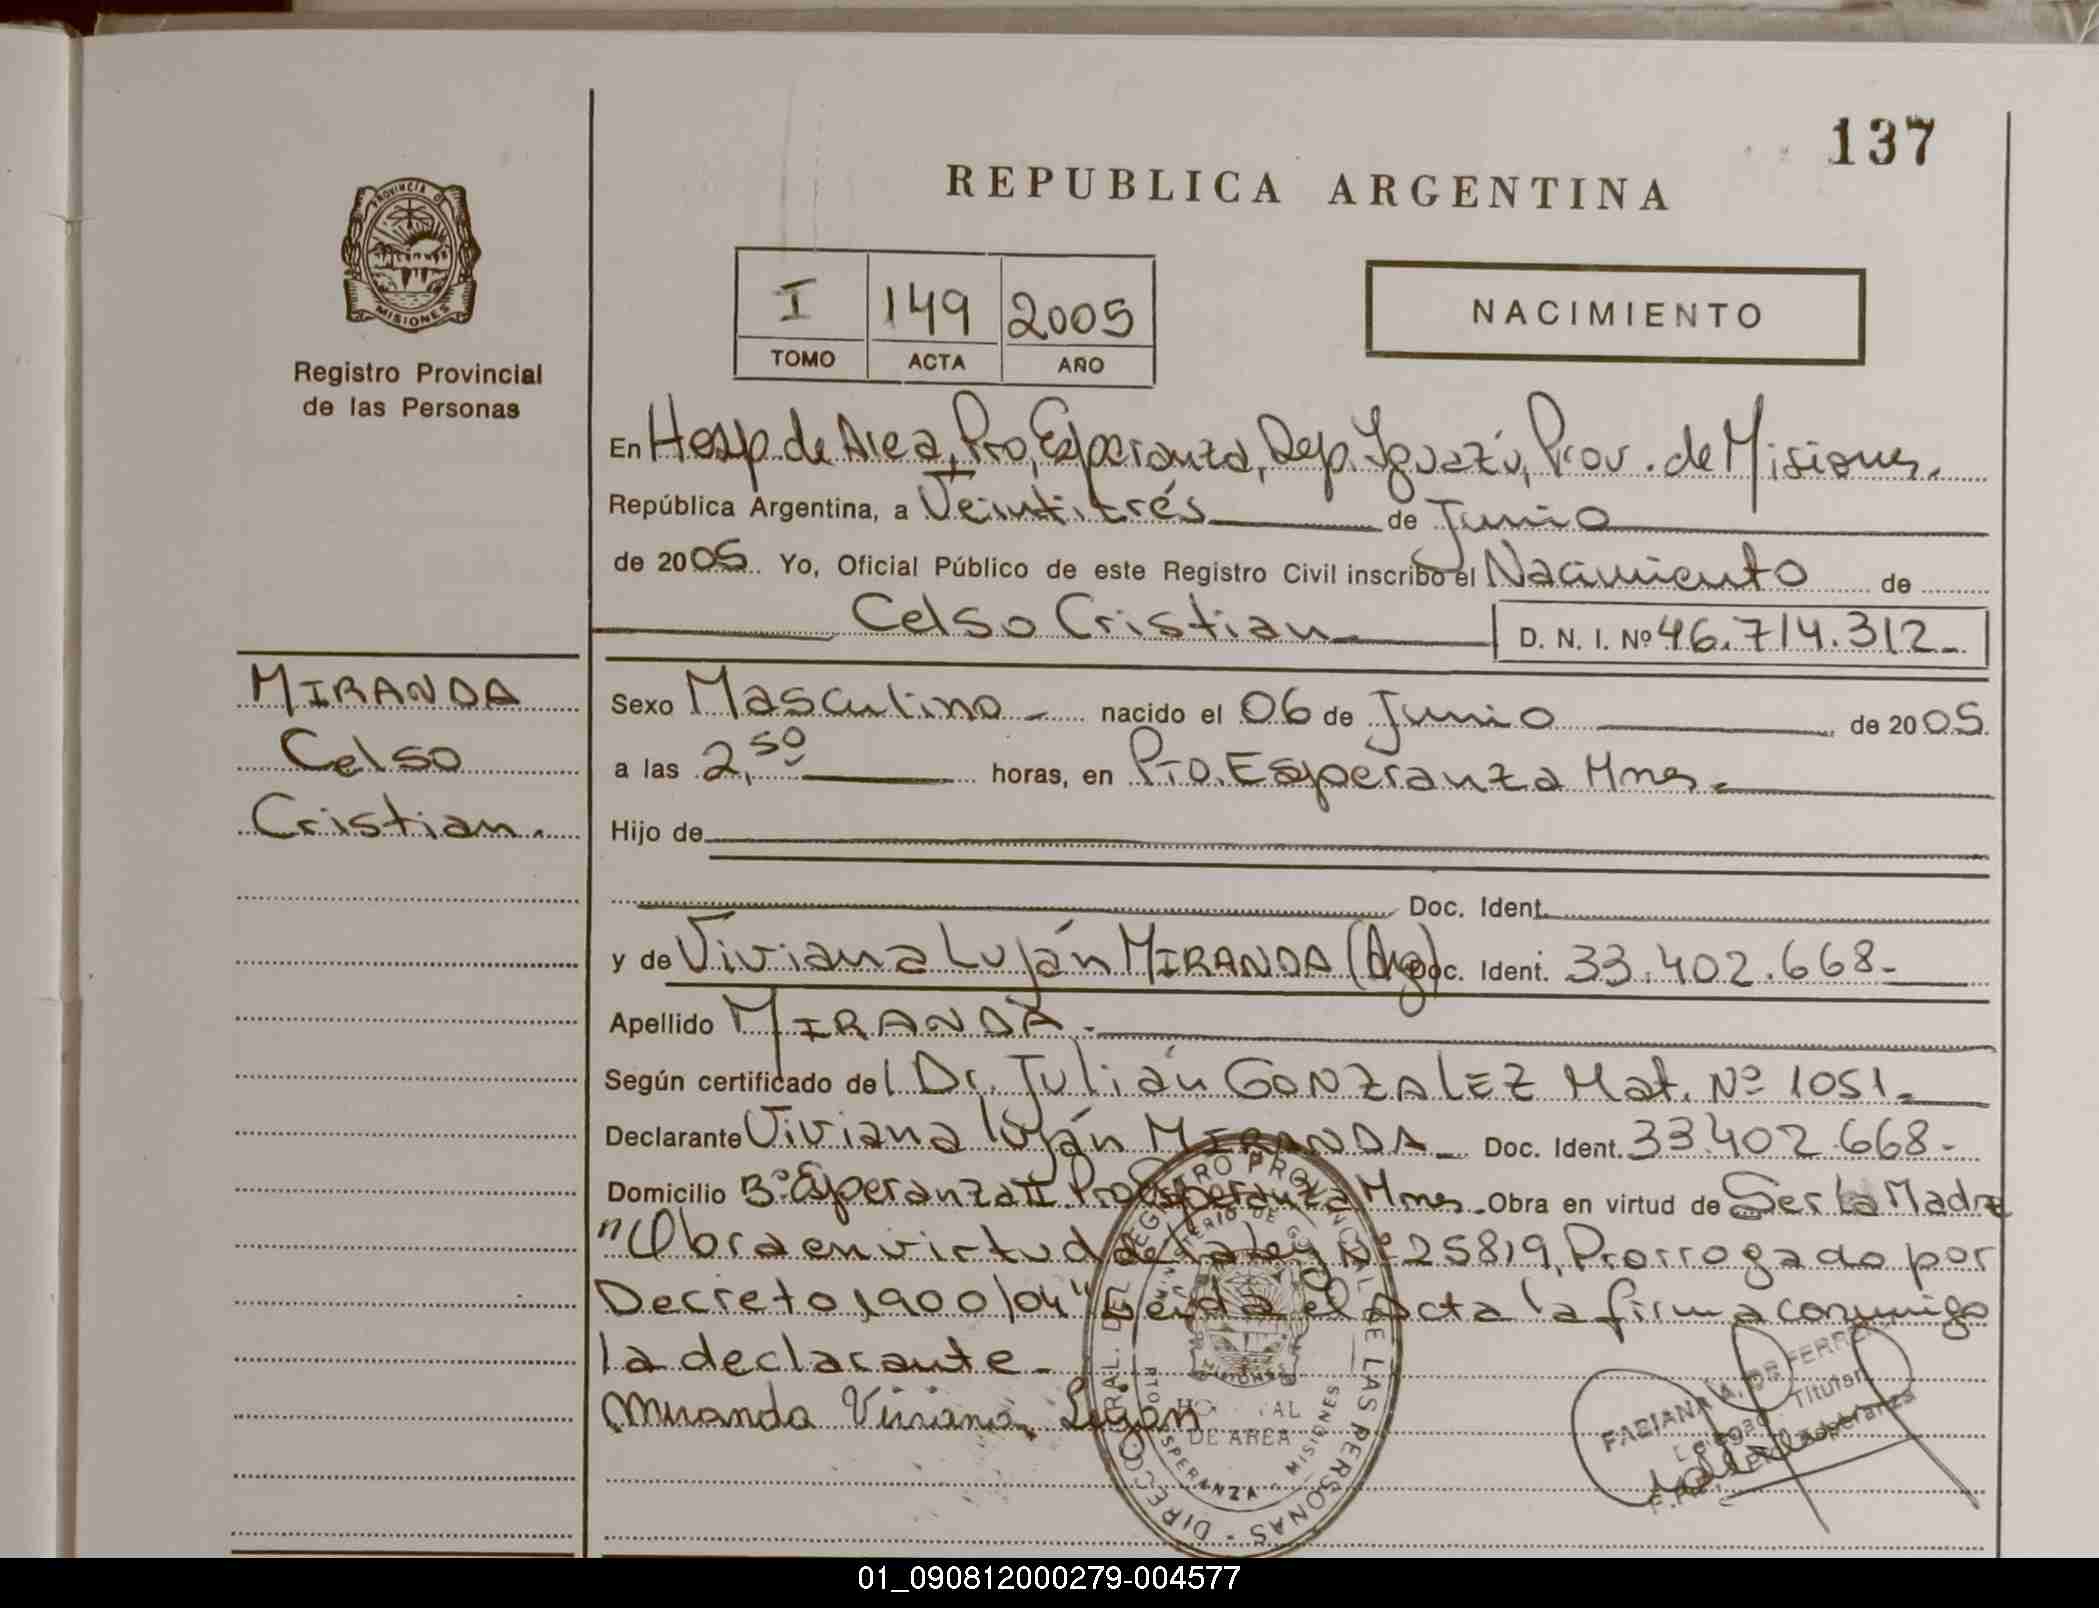 137
REPUBLICA ARGENTINA
PROVINCIA DE
MISIONES
Registro Provincial
de las Personas
I 149 2005
TOMO ACTA AÑO
NACIMIENTO
En Hosp. de Area, Pto, Esperanza, Dep. Iguazú, Prov. de Misiones.
República Argentina, a Veintitrés de Junio
de 2005. Yo, Oficial Público de este Registro Civil inscribo el Nacimiento de
Celso Cristian D. N. I. Nº 46.714.312
MIRANDA
Celso
Cristian.
Sexo Masculino nacido el 06 de Junio de 2005.
a las 2,50 horas, en Pto. Esperanza Mnes.
Hijo de
Doc. Ident.
y de Viviana Luján MIRANDA (Arg) Doc. Ident. 33.402.668-
Apellido MIRANDA.
Según certificado del Dr. Julián GONZALEZ Mat. Nº 1051.
Declarante Viviana Luján MIRANDA Doc. Ident. 33.402.668-
Domicilio Bº Esperanza II Pto Esperanza Mnes. Obra en virtud de Ser la Madre
"Obra en virtud de la ley Nº 25819, Prorrogado por
Decreto 1900/04" Leida el Acta la firma conmigo
la declarante.
Miranda Viviana Lujan
DIRECC. GRAL. DEL REGISTRO PROVINCIAL DE LAS PERSONAS
MINISTERIO DE
MISIONES
DE AREA
PTO. ESPERANZA - MISIONES
FABIANA A. DE
Titular
01_090812000279-004577